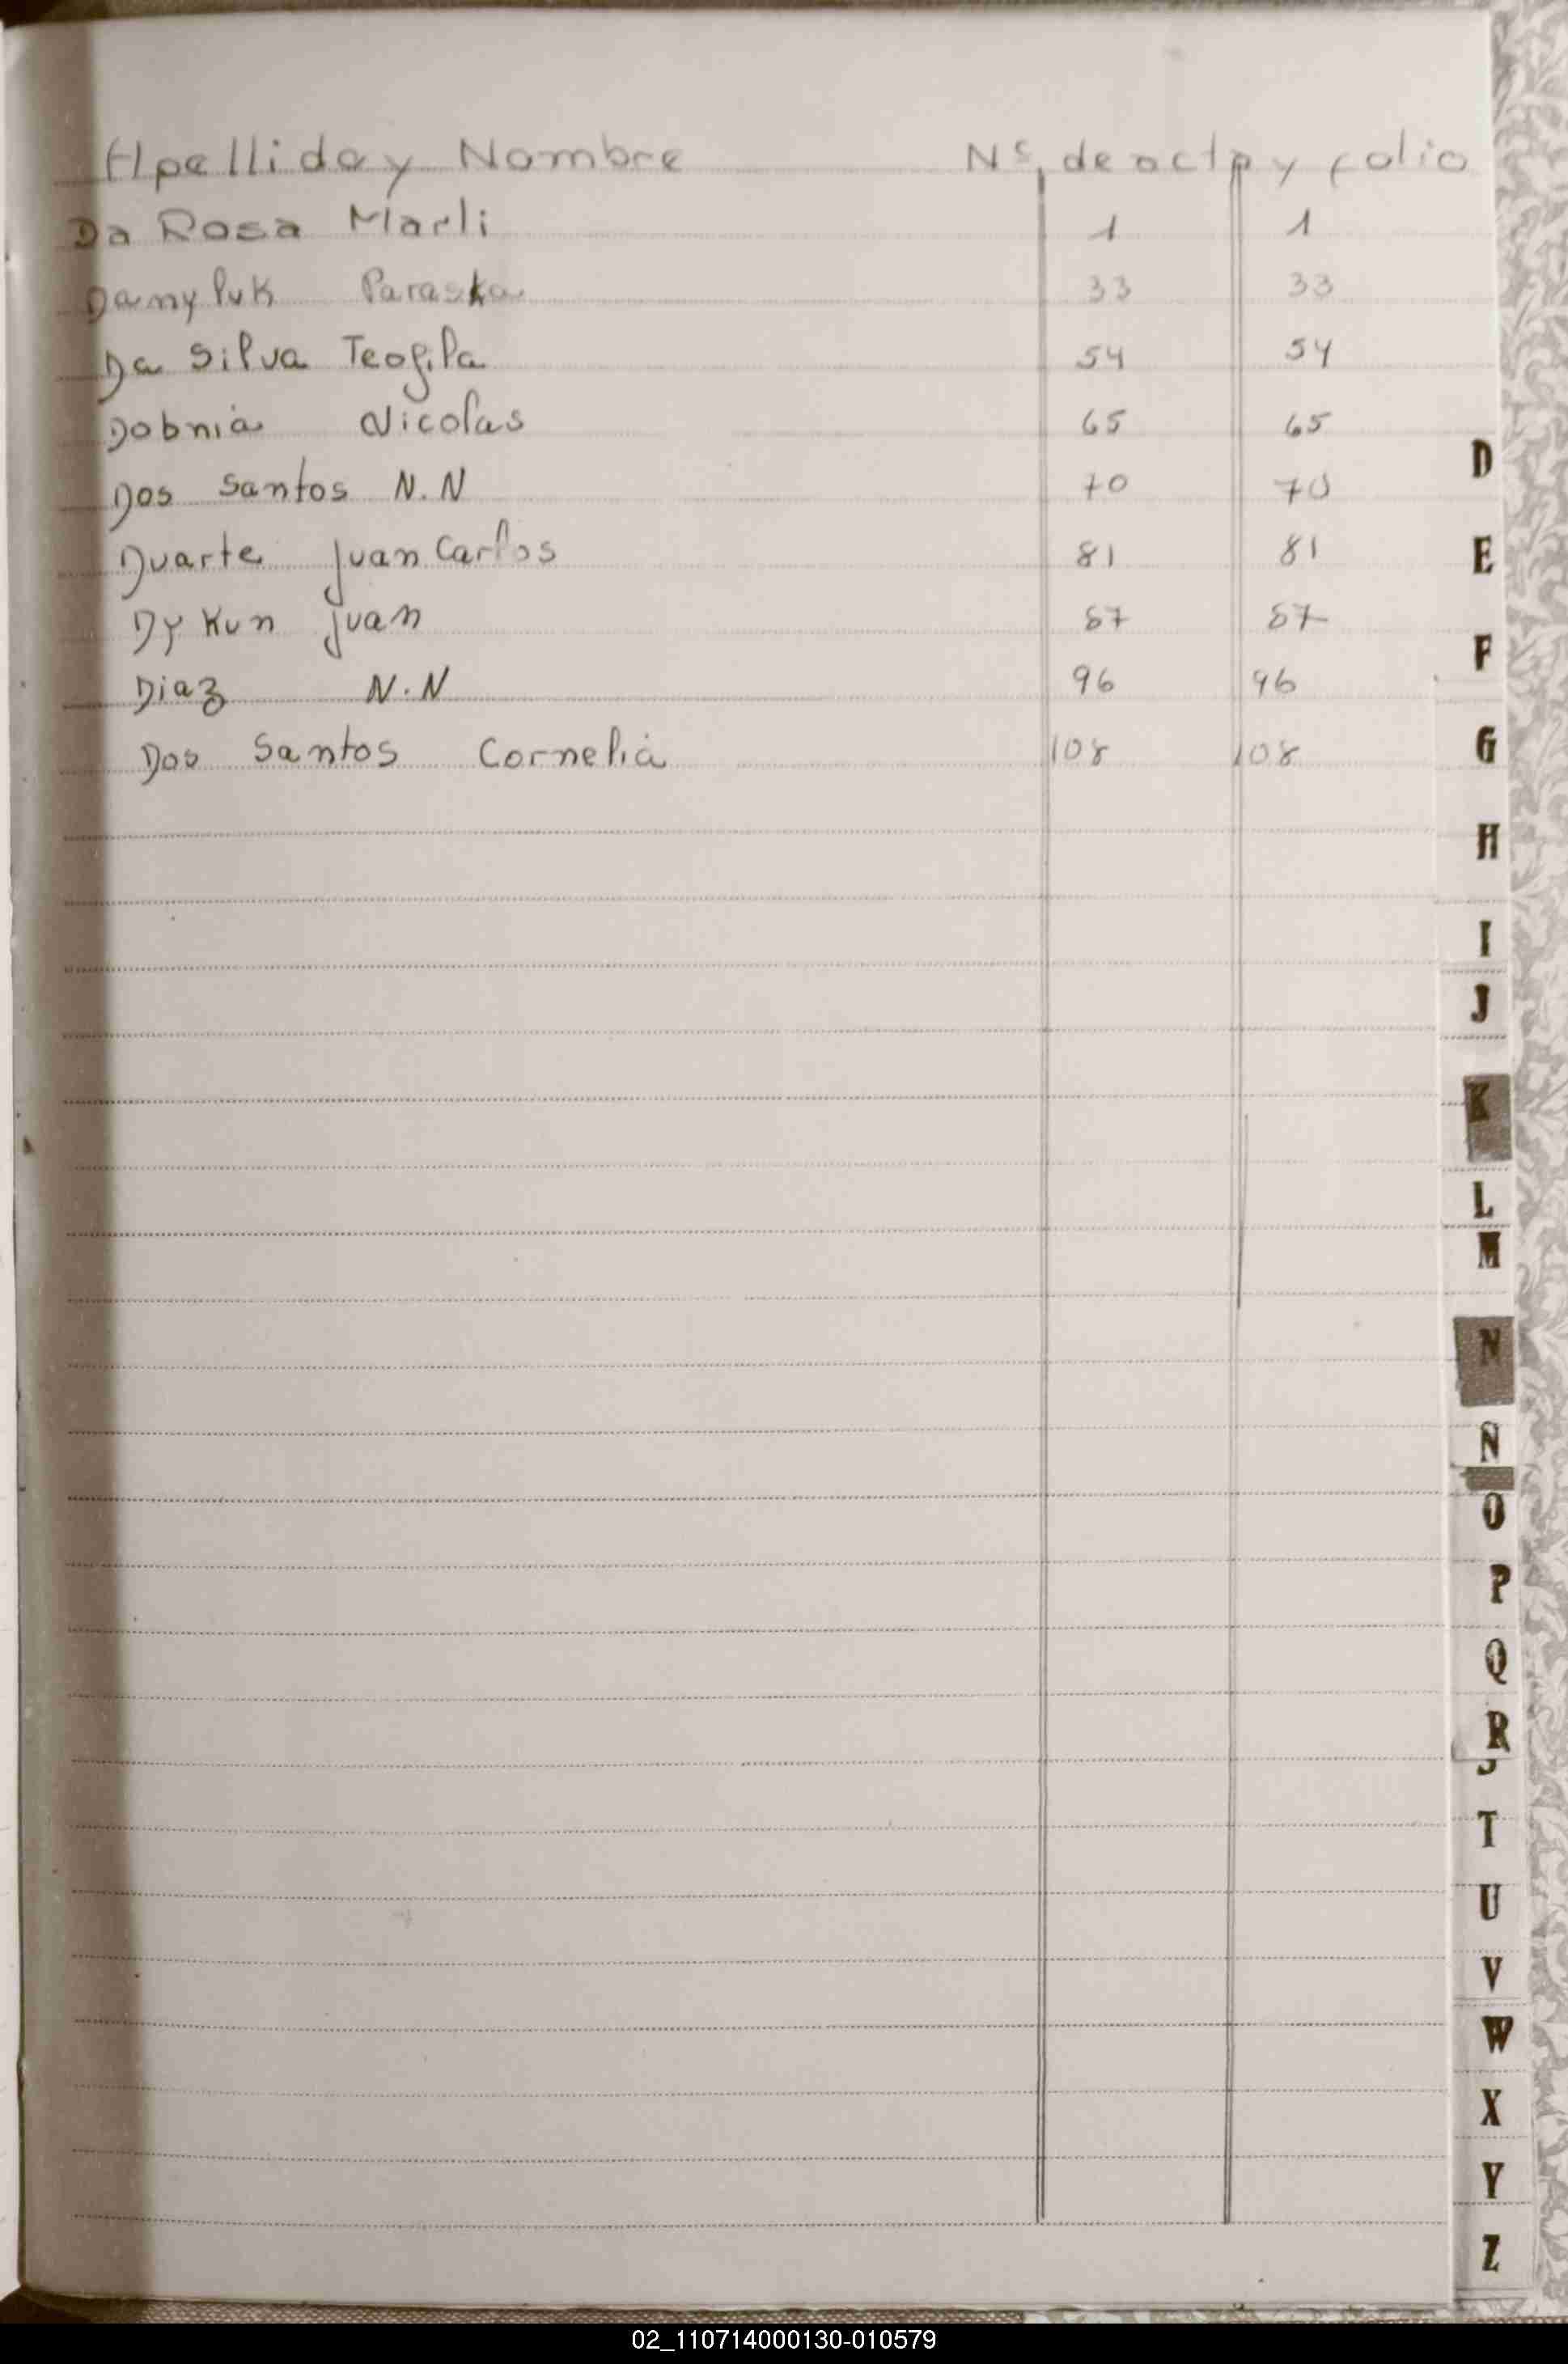 Apellido y Nombre Nº de acta y folio
Da Rosa Marli 1 1
Danyluk Paraska 33 33
Da Silva Teofila 54 54
Dobnia Nicolas 65 65
Dos Santos N.N 70 70
Duarte Juan Carlos 81 81
Dykun Juan 87 87
Diaz N.N 96 96
Dos Santos Cornelia 108 108
D
E
F
G
H
I
J
K
L
M
N
Ñ
O
P
Q
R
S
T
U
V
W
X
Y
Z
02_110714000130-010579